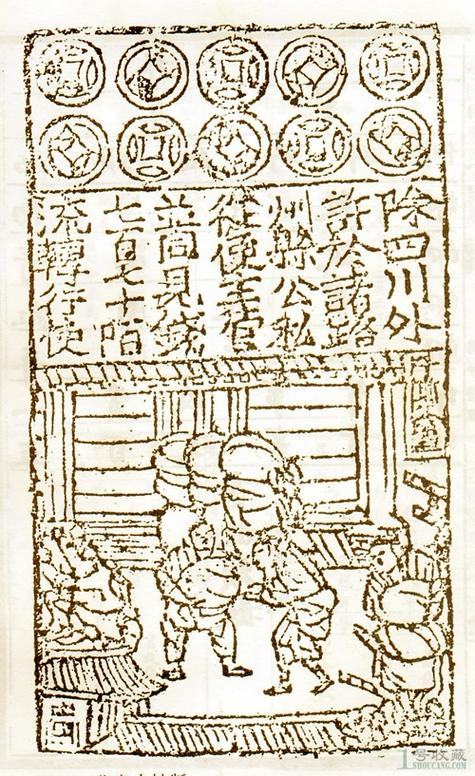 除四川外
許於諸路
州縣公私
從便主管
並同見錢
七百七十陌
流轉行使
1号收藏
1SHOUCANG.COM